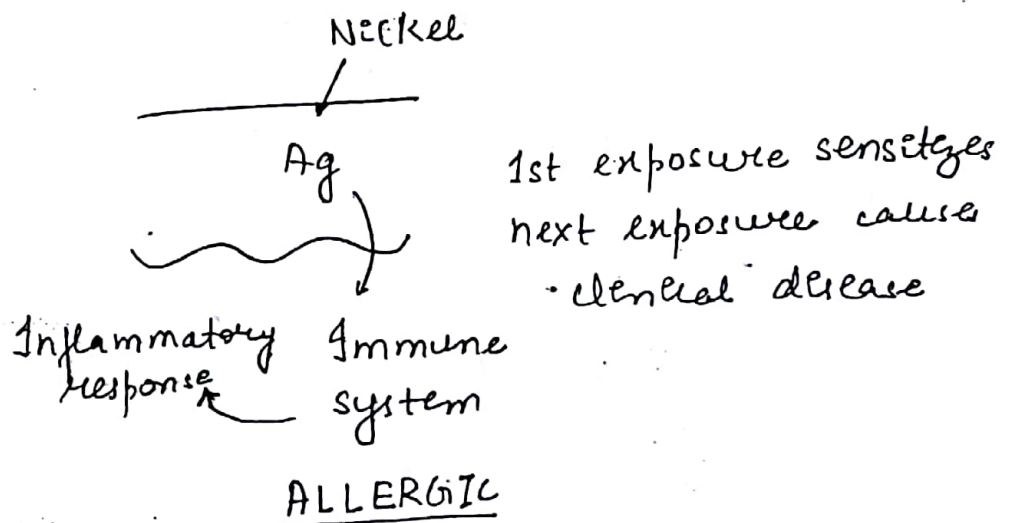 Nickel
Ag
1st exposure sensitizes
next exposure causes
clinical disease
Inflammatory
response
Immune
system
ALLERGIC